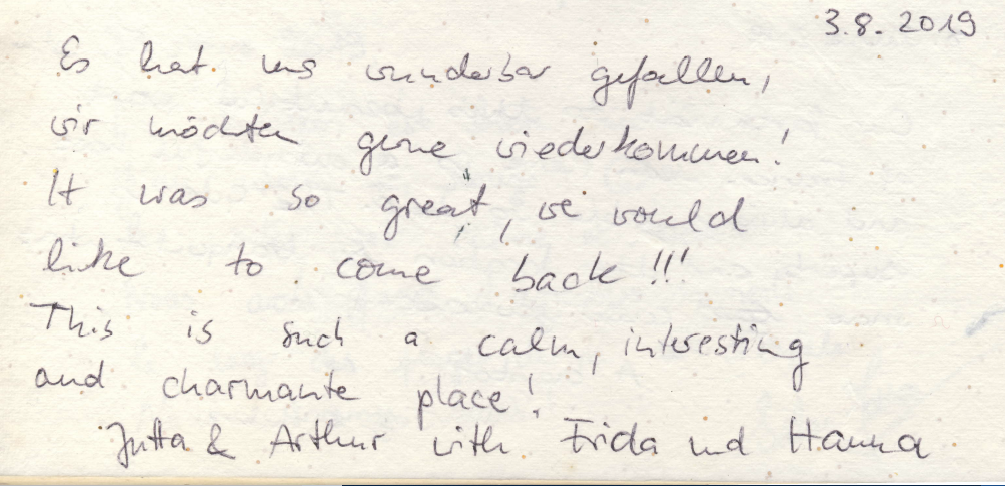 3.8. 2019
Es hat uns wunderbar gefallen,
wir möchten gerne wiederkommen!
It was so great, we would
like to come back!!!
This is such a calm, interesting
and charmante place!
Jutta & Arthur with Frida und Hanna